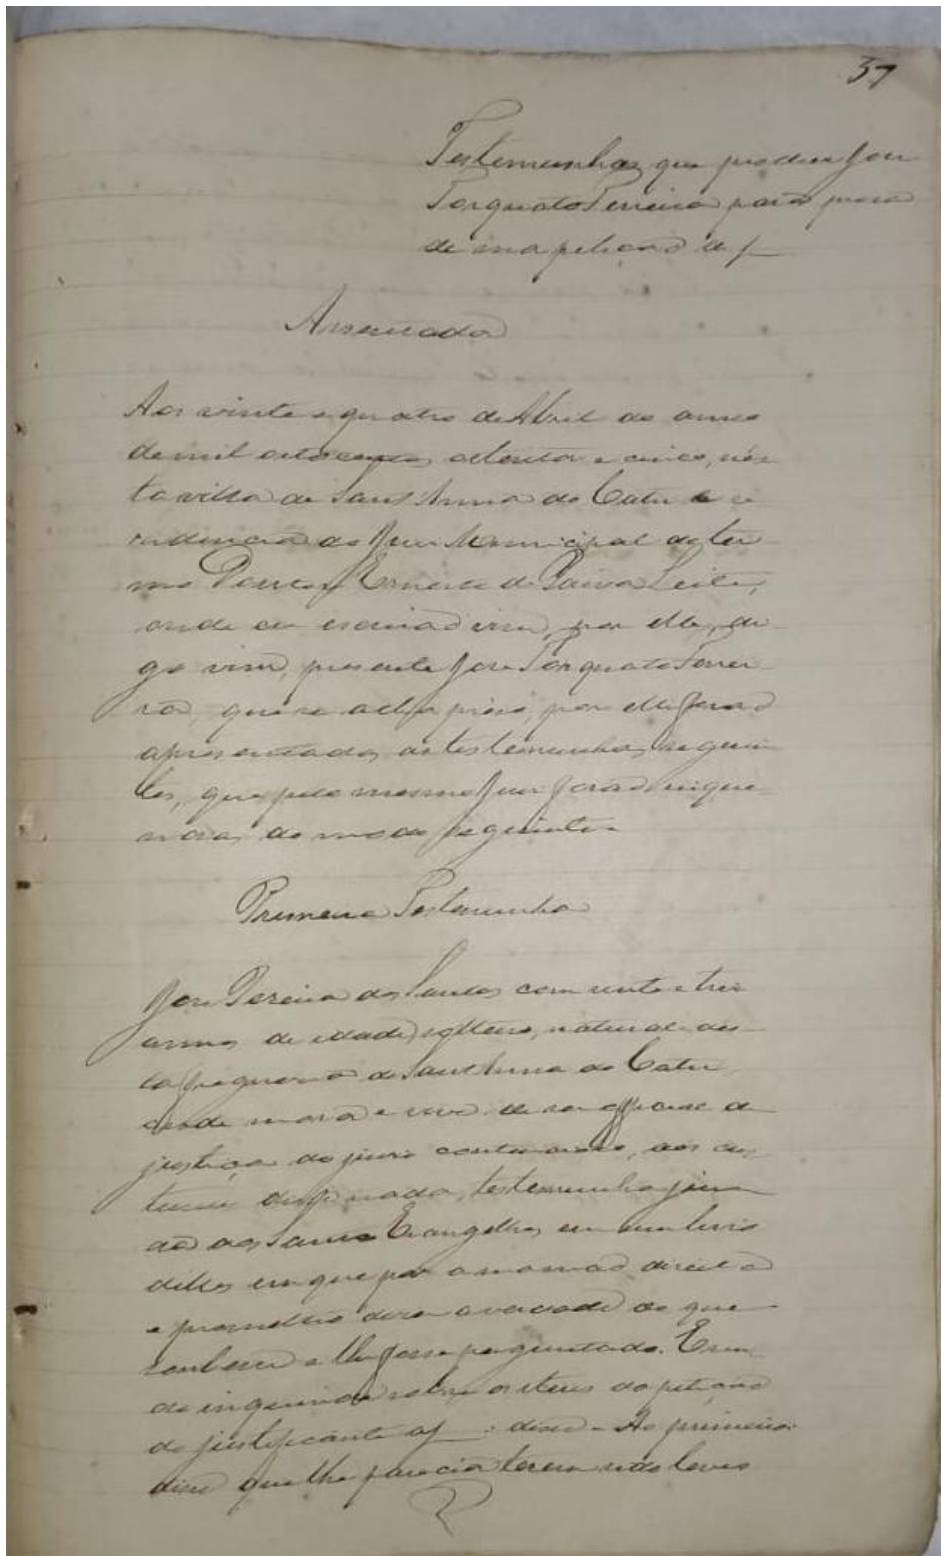 37
Testemunhas que produz José
Torquato Ferreira para prova
de sua petição de f
Assentada
Aos vinte e quatro de Abril do anno
de mil oito centos oitenta e cinco, nes
ta villa de Sant'Anna do Catu e re
sidencia do Juiz Municipal do ter
mo Doutor Ernesto de Paiva Leite,
onde eu escrivão vim, por elle, di
go vim, presente José Torquato Ferrei
ra, que se acha preso, por elle forão
apresentadas as testemunhas seguin
tes, que pelo mesmo Juiz forão inque
ridas do modo seguinte
Primeira Testemunha
José Pereira dos Santos com vinte e tres
annos de idade, solteiro, natural des
ta freguesia de Sant'Anna do Catu
onde mora e vive de ser official de
justiça do juiso, aos cos
tumes disse nada, testemunha jura
da aos Santos Evangelhos em um livro
delles em que poz a sua mão direita
e prometteo dizer a verdade do que
soubesse e lhe fosse perguntado. E sen
do inquirida sobre os itens da petição
do justificante af disse - Ao primeiro
disse que lhe parecia terem sido leves